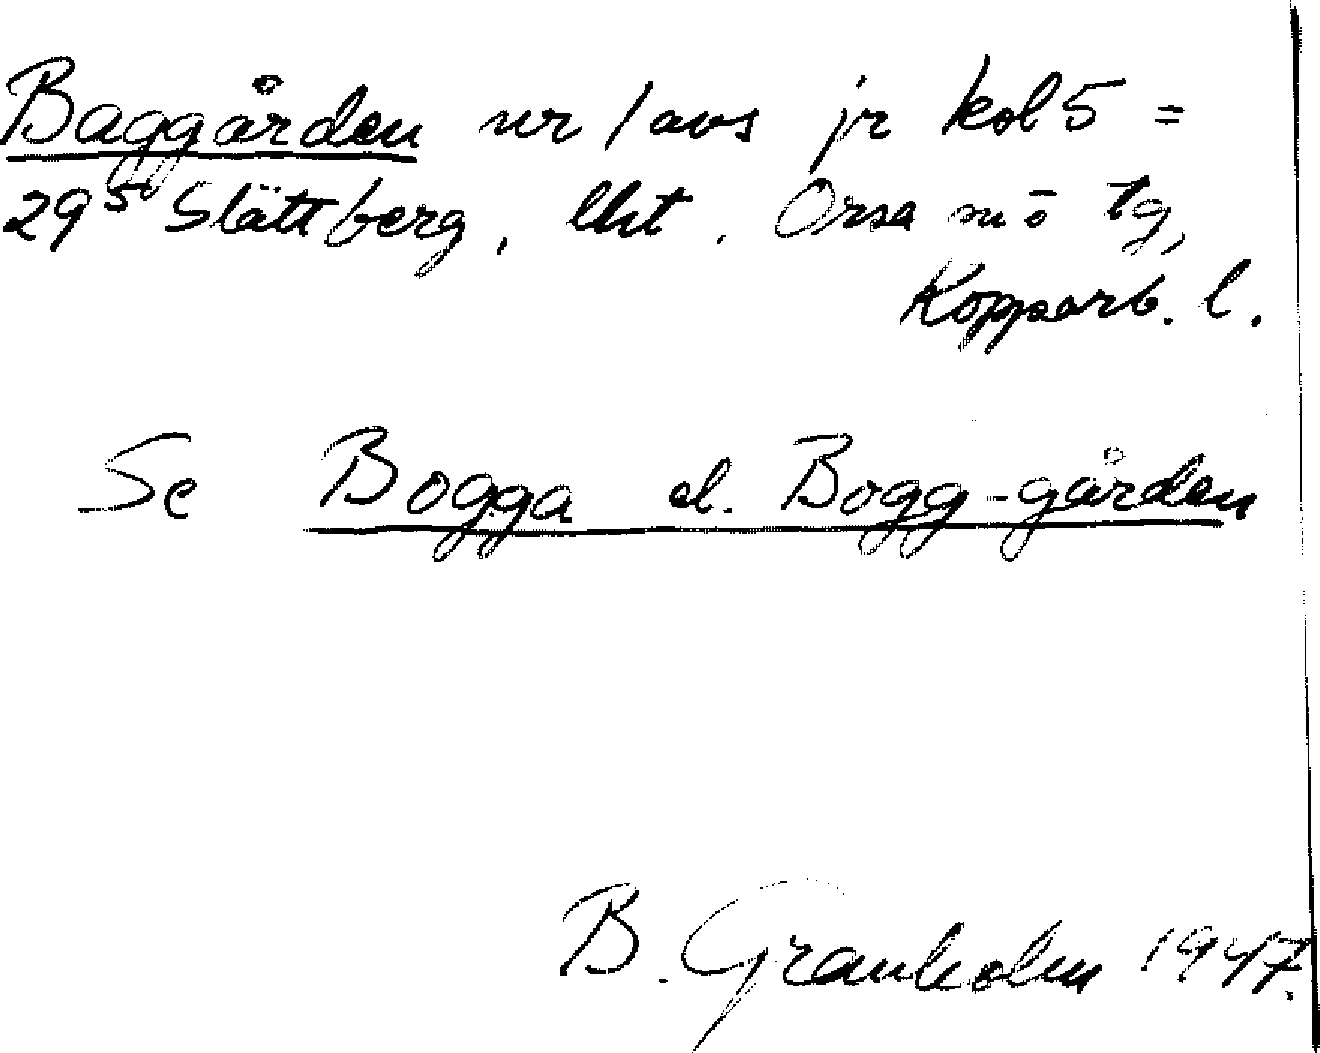 Baggården nr 1 avs jr kol 5 =
29⁵ Slättberg, lht. Orsa mō tg,
Kopparb. l.
Se Bogga el. Bogg-gården
B. Granholm 1947.